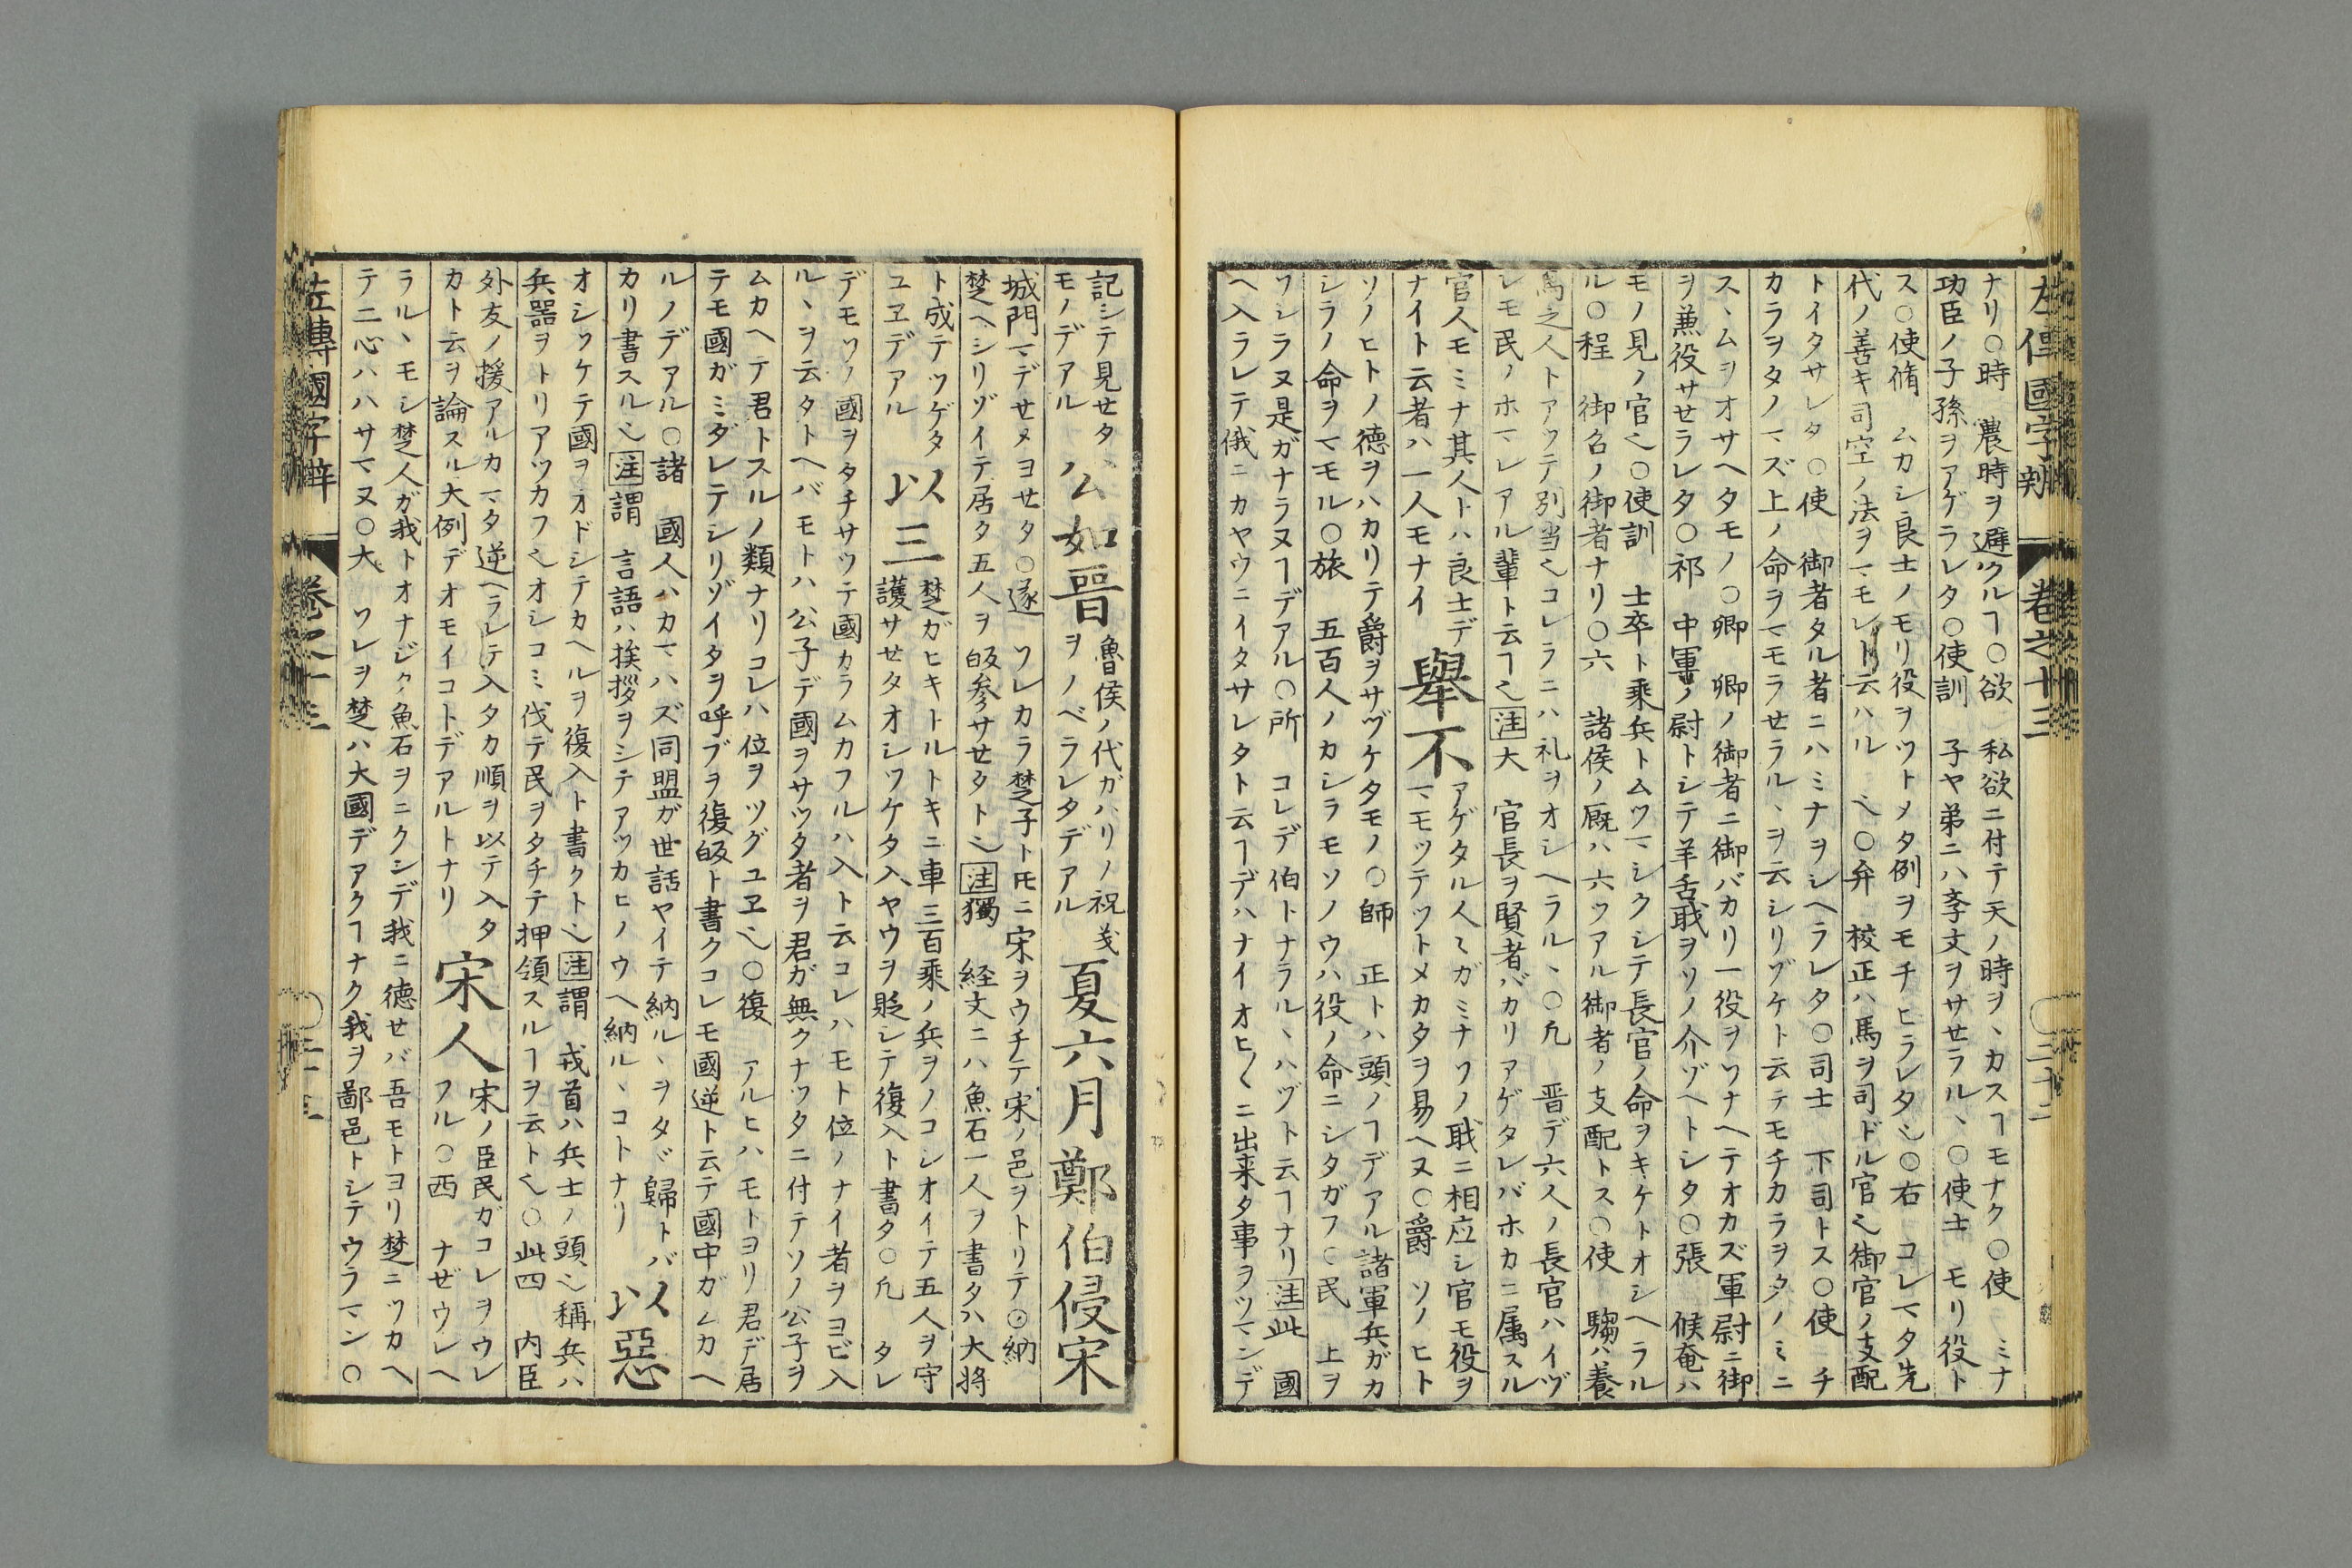 左傳國字辨　卷之十三
ナリ○時　農時ヲ避クルヿ○欲　私欲ニ付テ天ノ時ヲヽカスヿモナク○使　ミナ
功臣ノ子孫ヲアゲラレタ○使訓　子ヤ弟ニハ孝丈ヲサセラルヽ○使士　モリ役ト
ス○使脩　ムカシ良士ノモリ役ヲツトメタ例ヲモチヒラレタ〻○右　コレマタ先
代ノ善キ司空ノ法ヲマモレト云ハル〻○弁　校正ハ馬ヲ司ドル官〻御官ノ支配
トイタサレタ○使　御者タル者ニハミナヲシヘラレタ○司士　下司トス○使　チ
カラヲタノマズ上ノ命ヲマモラセラルヽヲ云シリゾケト云テモチカラヲタノミニ
スヽムヲオサヘタモノ○卿　卿ノ御者ニ御バカリ一役ヲツナヘテオカズ軍尉ニ御
ヲ兼役サセラレタ○祁　中軍ノ尉トシテ羊舌职ヲソノ介ゾヘトシタ○張　候奄ハ
モノ見ノ官〻○使訓　士卒ト乘兵トムツマシクシテ長官ノ命ヲキケトオシヘラル
ル○程　御名ノ御者ナリ○六　諸侯ノ厩ハ六ツアル御者ノ支配トス○使　騶ハ養
馬之人トアツテ別当〻コレラニハ礼ヲオシヘラルヽ○凡　晋デ六人ノ長官ハイヅ
レモ民ノホマレアル輩ト云ヿ〻注大　官長ヲ賢者バカリアゲタレバホカニ属スル
官人モミナ其人トハ良士デ
ナイト云者ハ一人モナイ　舉不　アゲタル人〻ガミナソノ职ニ相应シ官モ役ヲ
マモツテツトメカタヲ易ヘヌ○爵　ソノヒト
ソノヒトノ德ヲハカリテ爵ヲサヅケタモノ○師　正トハ頭ノヿデアル諸軍兵ガカ
シラノ命ヲマモル○旅　五百人ノカシラモソノウハ役ノ命ニシタガフ○民　上ヲ
ソシラヌ是ガナラヌヿデアル○所　コレデ伯トナラルヽハヅト云ヿナリ注此　國
ヘ入ラレテ俄ニカヤウニイタサレタト云ヿデハナイオヒ〱ニ出来タ事ヲツマンデ
記シテ見セタ
モノデアル　公如晋　魯侯ノ代ガハリノ祝義
ヲノベラレタデアル　夏六月鄭伯侵宋
城門マデセメヨセタ○遂　ソレカラ楚子ト𪜈ニ宋ヲウチテ宋ノ邑ヲトリテ○納
楚ヘシリゾイテ居タ五人ヲ皈参サセタト〻注獨　経文ニハ魚石一人ヲ書タハ大将
ト成テツゲタ
ユヱデアル　以三　楚ガヒキトルトキニ車三百乘ノ兵ヲノコシオイテ五人ヲ守
護サセタオシツケタ入ヤウヲ貶シテ復入ト書タ○凡　タレ
デモソノ國ヲタチサツテ國カラムカフルハ入ト云コレハモト位ノナイ者ヲヨビ入
ルヽヲ云タトヘバモトハ公子デ國ヲサツタ者ヲ君ガ無クナツタニ付テソノ公子ヲ
ムカヘテ君トスルノ類ナリコレハ位ヲツグユヱ〻○復　アルヒハモトヨリ君デ居
テモ國ガミダレテシリゾイタヲ呼ブヲ復皈ト書クコレモ國逆ト云テ國中ガムカヘ
ルノデアル○諸　國人ハカマハズ同盟ガ世話ヤイテ納ルヽヲタヾ歸トバ
カリ書スル〻注謂　言語ハ挨拶ヲシテアツカヒノウヘ納ルヽコトナリ　以惡
オシツケテ國ヲオドシテカヘルヲ復入ト書クト〻注謂　戎首ハ兵士ノ頭〻稱兵ハ
兵器ヲトリアツカフ〻オシコミ伐テ民ヲタチテ押領スルヿヲ云ト〻○此四　内臣
外友ノ援アルカマタ逆ヘラレテ入タカ順ヲ以テ入タ
カト云ヲ論スル大例デオモイコトデアルトナリ　宋人　宋ノ臣民ガコレヲウレ
フル○西　ナゼウレヘ
ラルヽモシ楚人ガ我トオナジク魚石ヲニクシデ我ニ德セバ吾モトヨリ楚ニツカヘ
テ二心ハハサマヌ○大　ワレヲ楚ハ大國デアクヿナク我ヲ鄙邑トシテウラマン○
左傳國字辨　卷之十三